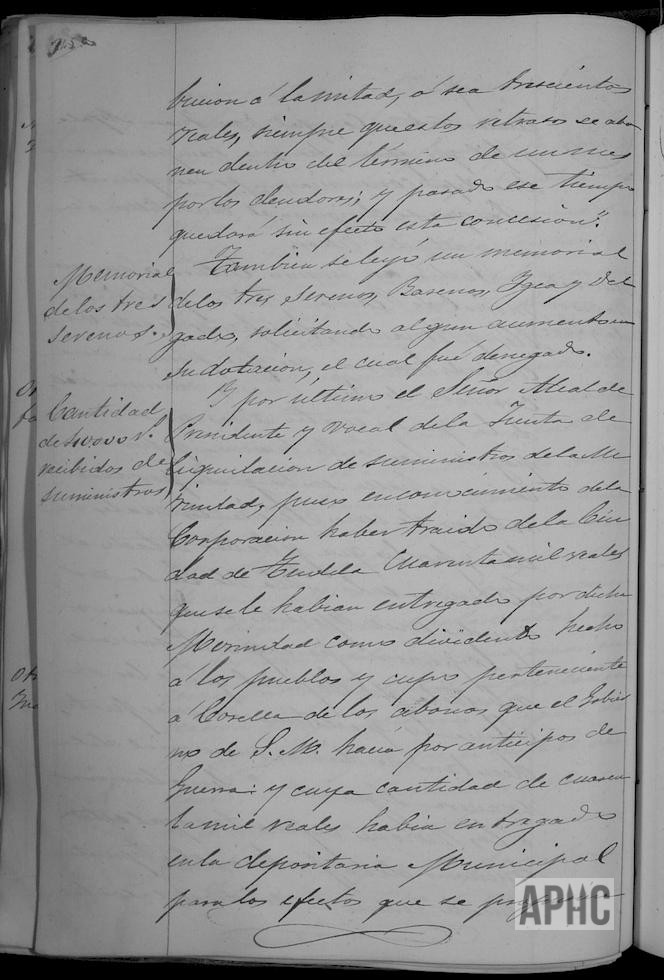 bucion á la mitad, ó sea trescientos
reales, siempre que estos retrasos se abo
nen dentro del término de un mes
por los deudores; y pasado ese tiempo
quedará sin efecto esta concesion".
Tambien se leyó un memorial
de los tres Serenos, Y
gado, solicitando algun aumento en
su dotacion, el cual fué denegado.
Y por último el Señor Alcalde
Presidente y vocal de la Junta de
Liquilacion de suministros de la Me
rindad, puso en conocimiento de la
Corporacion haber traido de la Ciu
dad de Tudela Cuarenta mil reales
que se le habian entregado por dicha
Merindad como dividendo hecho
á los pueblos y cupo perteneciente
á Corella de los abonos que el Gobier
no de S. M. hacia por anticipos de
Guerra: y cuya cantidad de cuaren
ta mil reales habia entregado
en la depositaria Municipal
para los efectos que se
Memorial
de los tres
Serenos.
Cantidad
de
recibidos de
suministros
APHC